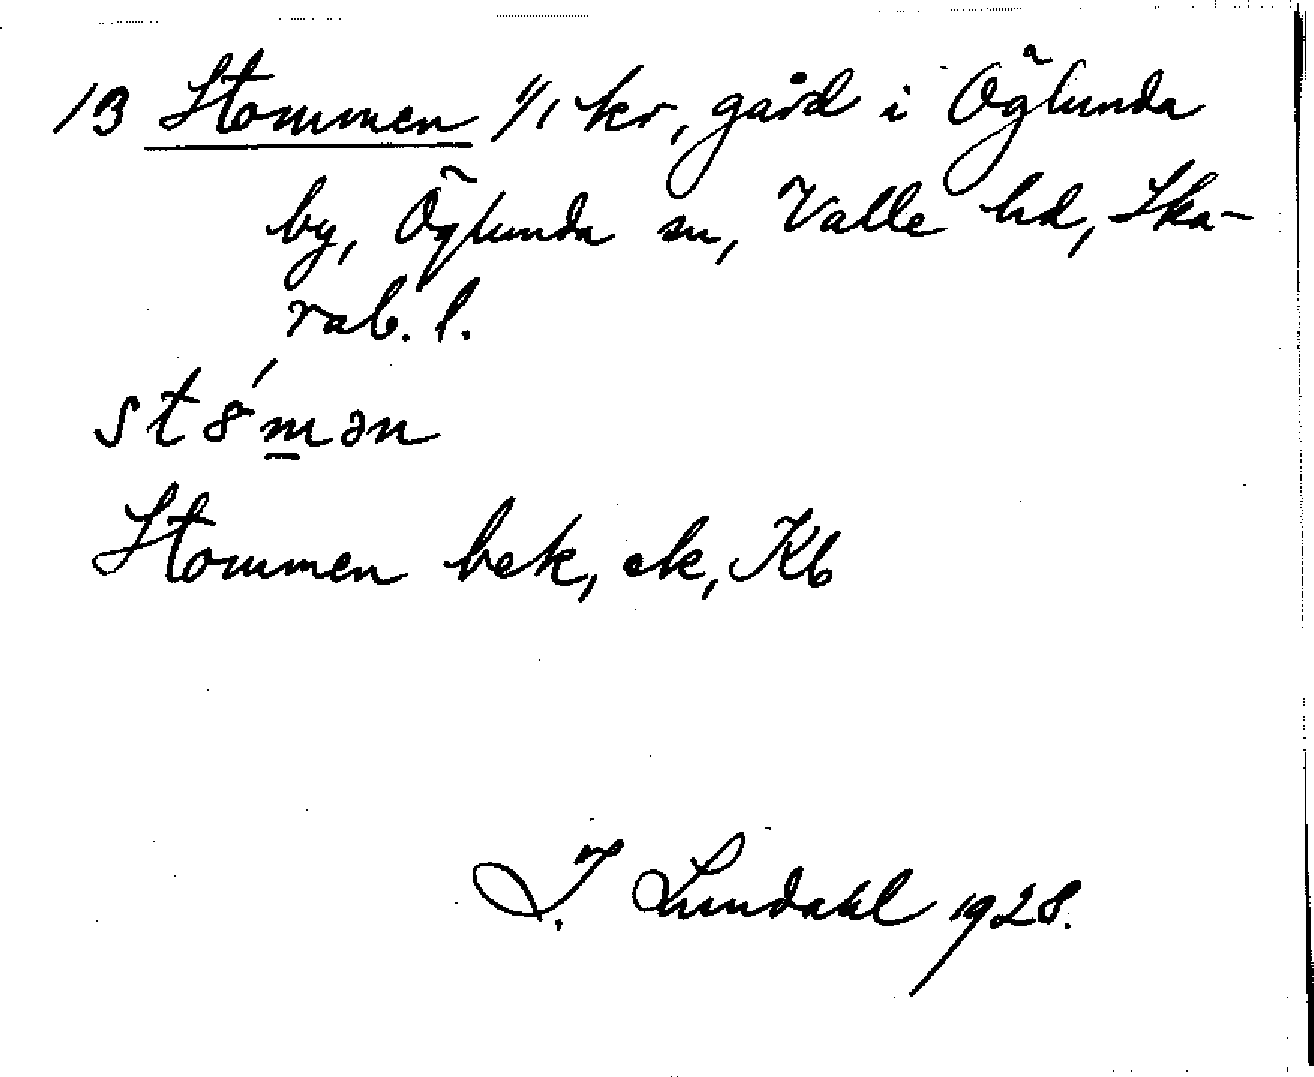 13 Stommen 1/1 kr, gård i Öglunda
by, Öglunda sn, Valle hd, Ska-
rab. l.
st8́m̲ən
Stommen bek, ek, Kb
I. Lundahl 1928.